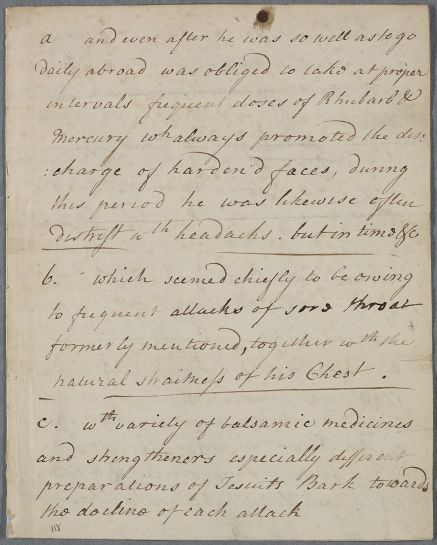 a and even after he was so well as to go
daily abroad was obliged to take at proper
intervals frequent doses of Rhubarb &
Mercury wh always promoted the dis:
:charge of harden'd faces, during
this period he was likewise often
distrest wth headachs. but in time &c
b. which seemed chiefly to be owing
to frequent attacks of sore throat
formerly mentioned, together wth the
natural straitness of his Chest.
c. wth variety of balsamic medicines
and strengtheners especially different
preparations of Jesuits Bark towards
the decline of each attack